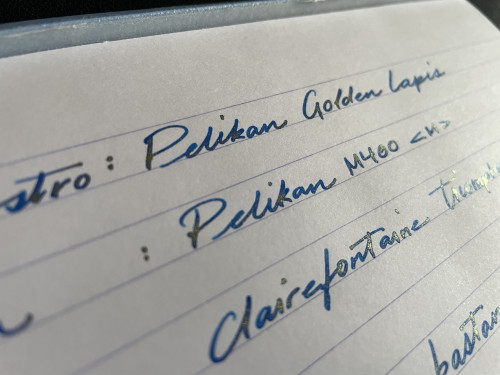 stro: Pelikan Golden Lapis
: Pelikan M400 <M>
Clairefontaine triomphe
bastan